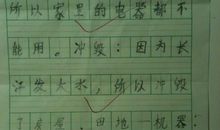 所以家里的电器都不
能用。冲毁：因为长
江发大水，所以冲毁
了房屋，田地一机器：